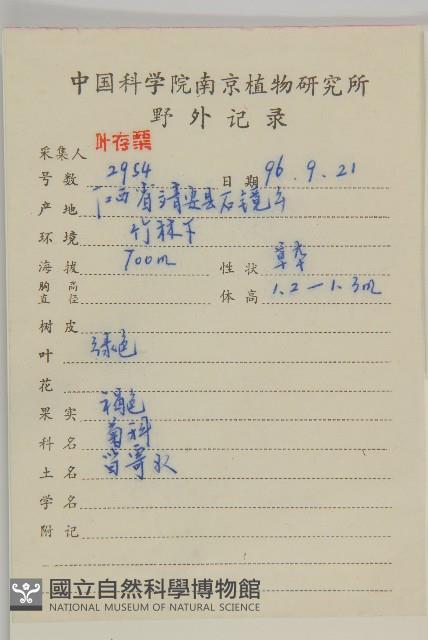 中国科学院南京植物研究所
野外记录
采集人 叶存粟
号数 2954 日期 96.9.21
产地 江西省靖安县石镜
环境 竹林下
海拔 700m 性状 草本
胸高直径 体高 1.2—1.3m
树皮
叶 绿色
花
果实 褐色
科名 菊科
土名
学名
附记
國立自然科學博物館
NATIONAL MUSEUM OF NATURAL SCIENCE